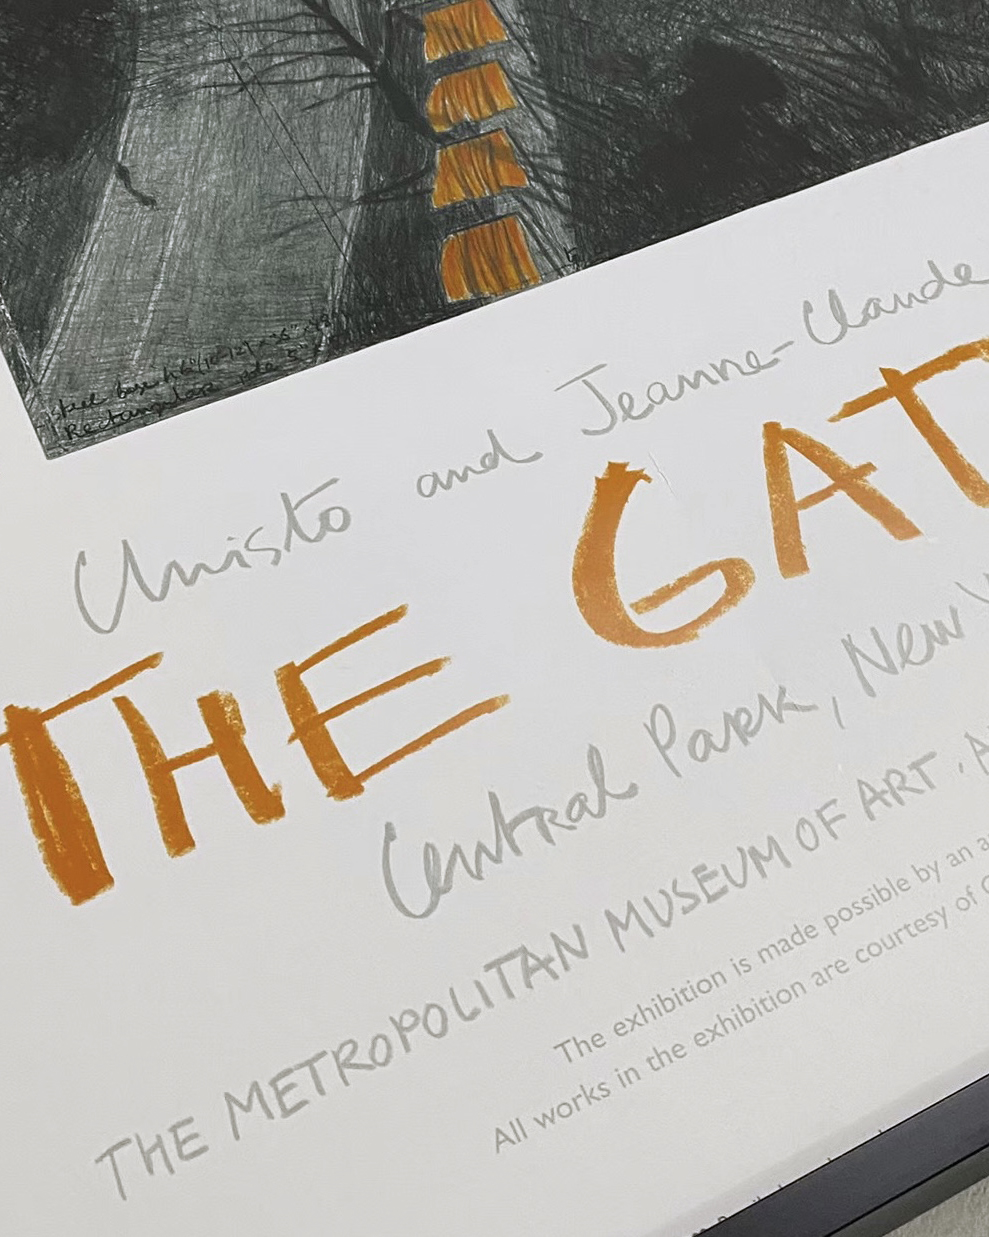 steel base
Rectangular
Christo and Jeanne-Claude
THE GAT
Central Park, New Y
THE METROPOLITAN MUSEUM OF ART . A
The exhibition is made possible by an a
All works in the exhibition are courtesy of C